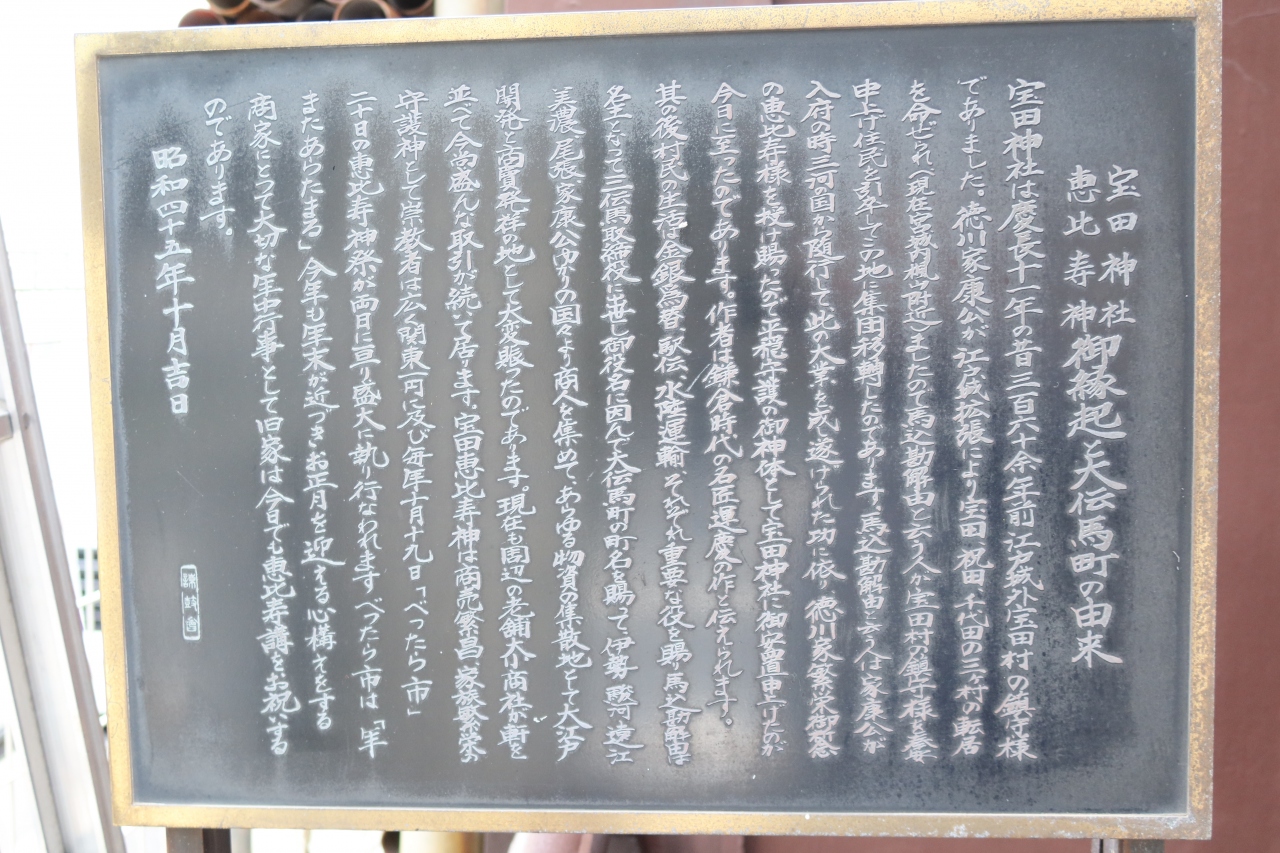 宝田神社
恵比寿神
御縁起と大伝馬町の由来
宝田神社は慶長十一年の昔三百六十余年前江戸城外宝田村の鎮守様
でありました。徳川家康公が江戸城拡張により宝田、祝田、千代田の三ヶ村の転居
を命ぜられ(現在宮城内楓山附近)ましたので馬込勘解由と云う人が宝田村の鎮守様を奉安
申上げ住民を引卒してこの地に集団移転したのであります。馬込勘解由と云う人は家康公が
入府の時三河国から随行して此の大業を成し遂げられた功に依り徳川家繁栄御祈念
の恵比寿様を授け賜ったので平穏守護の御神体として宝田神社に御安置申上げたのが
今日に至ったのであります。作者は鎌倉時代の名匠運慶の作と伝えられます。
其の後村民の生活は金銀為替、駅伝、水陸運輸、それぞれ重要な役を賜り馬込勘解由は
名主となって三伝馬取締役に出世し御役名に因んで大伝馬町の町名を賜って、伊勢、駿河、遠江
美濃、尾張家康公ゆかりの国々より商人を集めて、あらゆる物資の集散地として大江戸
開発と商売発祥の地として大変賑ったのであります。現在も周辺の老舗大小商社が軒を
並べて今尚盛んな取引が続いて居ります。宝田恵比寿神は商売繁昌、家族繁栄の
守護神として崇敬者は広く関東一円に及び毎年十月十九日「べったら市」
二十日の恵比寿神祭が両日に亘り盛大に執り行なわれますべったら市は「年
またあらたまる」今年も年末が近づきお正月を迎える心構えをする
商家にとって大切な年中行事として旧家は今日でも恵比寿講をお祝いする
のであります。
昭和四十五年十月吉日